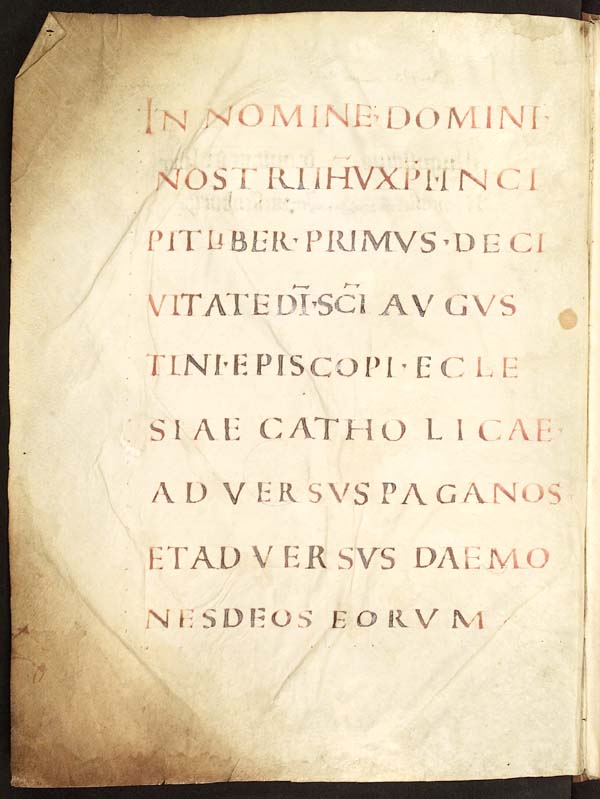 IN NOMINE·DOMINI·
NOSTRI IH̅V XP̅I·INCI
PIT LIBER·PRIMVS·DE CI
VITATE DI̅·SC̅I AVGVS
TINI·EPISCOPI·ECLE
SIAE CATHOLICAE·
ADVERSVS PAGANOS
ET ADVERSVS DAEMO
NES DEOS EORVM